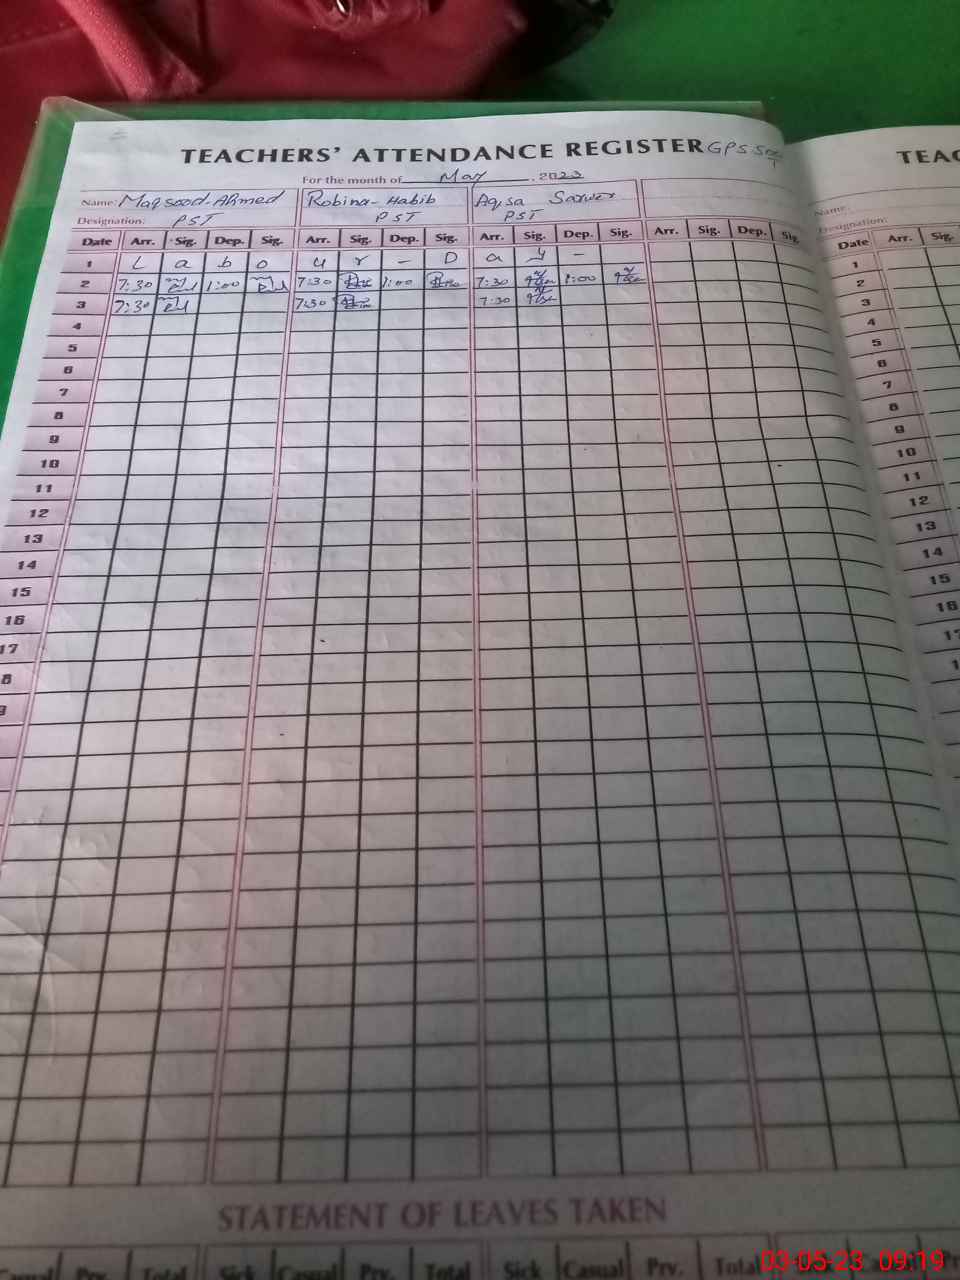 TEACHERS' ATTENDANCE REGISTER GPS TEAC
For the month of May, 2023
Name: Maqsood Ahmed Robina Habib Aqsa Sarwer Name:
Designation: PST PST PST Designation:
Date Arr. Sig. Dep. Sig. Arr. Sig. Dep. Sig. Arr. Sig. Dep. Sig. Arr. Sig. Dep. Sig. Date Arr. Sig.
1 L a b o u r - D a y - 1
2 7:30 1:00 7:30 1:00 7:30 1:00 2
3 7:30 7:30 7:30 3
4 4
5 5
6 6
7 7
8 8
9 9
10 10
11 11
12 12
13 13
14 14
15 15
16 16
17 17
8 1
9
STATEMENT OF LEAVES TAKEN
Casual Prv. Total Sick Casual Prv. Total Sick Casual Prv. Total
03-05-23 09:19